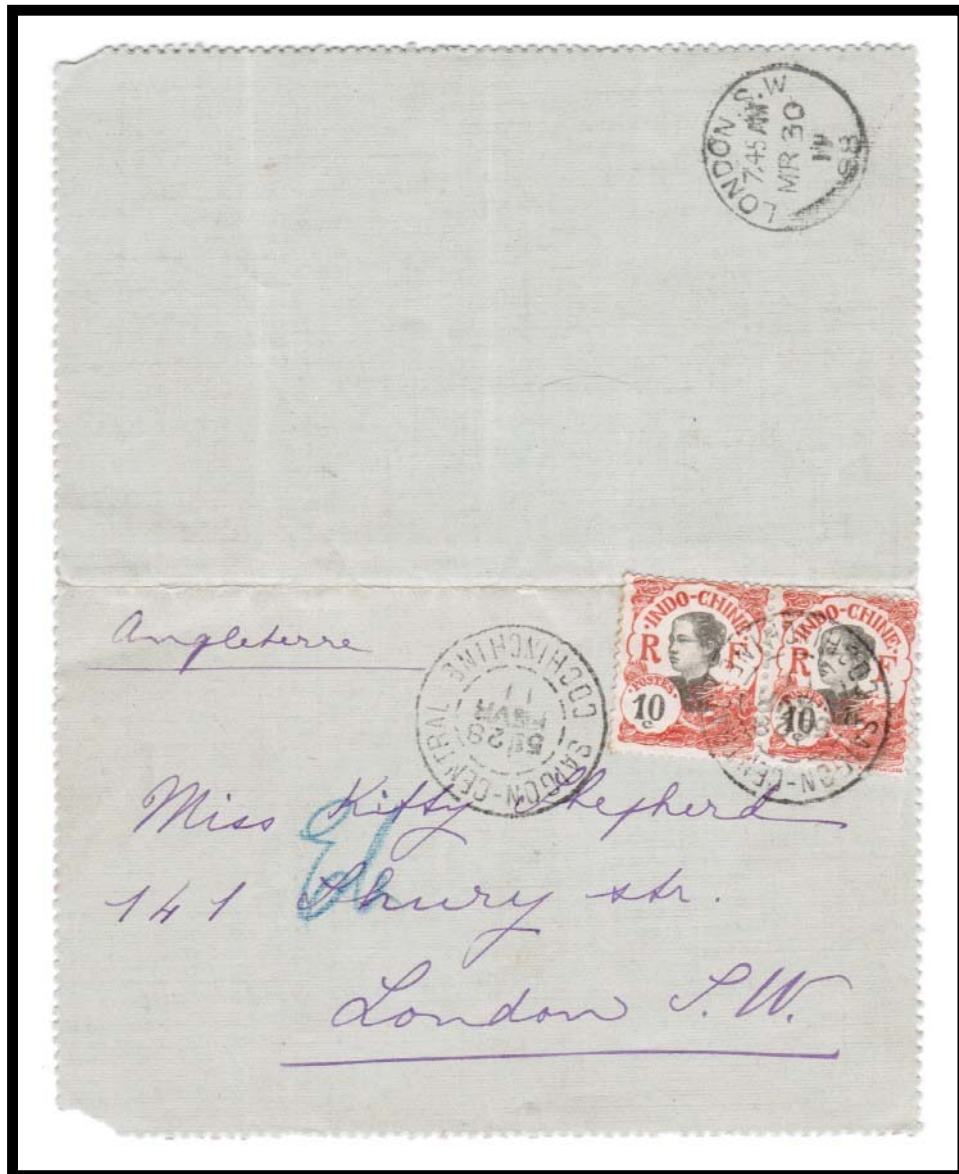 LONDON S.W
7.45 AM
MR 30
11
88
Angleterre
SAIGON-CENTRAL
COCHINCHINE
5E 28
FEVR
11
INDO-CHINE
R F
POSTES
10 c
INDO-CHINE
R F
POSTES
10 c
SAIGON-CENTRAL
Miss Kitty Shepherd
141 str.
London S.W.